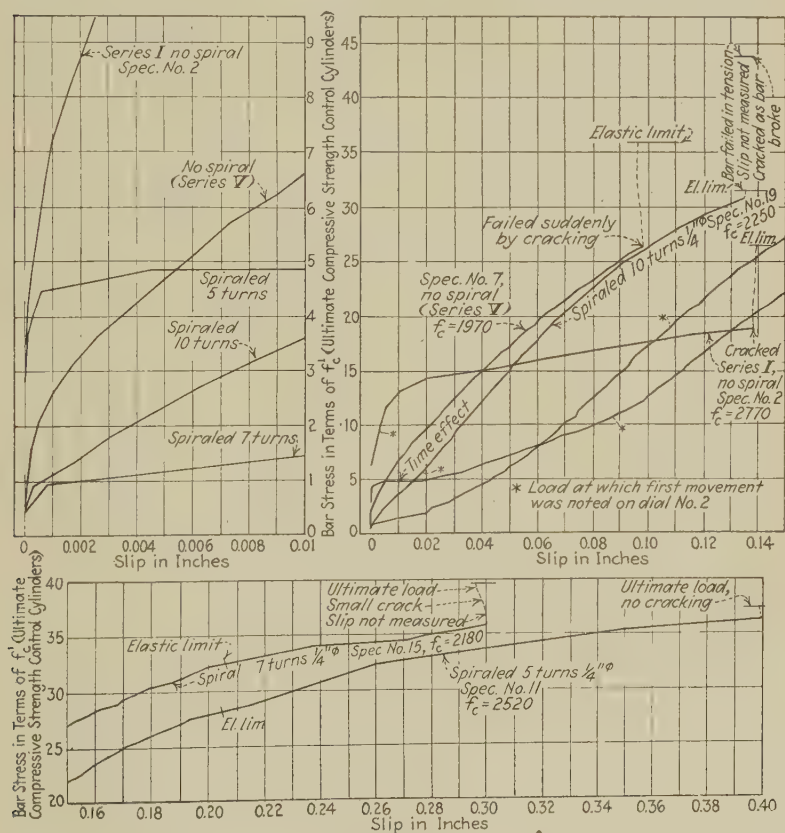 Series I no spiral
Spec. No. 2
No spiral
(Series V)
Spiraled
5 turns
Spiraled
10 turns
Spiraled 7 turns
9
8
7
6
5
4
3
2
1
0
0 0.002 0.004 0.006 0.008 0.01
Slip in Inches
Bar Stress in Terms of f'c (Ultimate Compressive Strength Control Cylinders)
45
40
35
30
25
20
15
10
5
0
Elastic limit
Bar failed in tension
Slip not measured
Cracked as bar
broke
El. lim.
Failed suddenly
by cracking
Spiraled 10 turns 1/4"φ Spec. No. 19
fc=2250
El. lim.
Spec. No. 7,
no spiral
(Series V)
fc=1970
Cracked
Series I,
no spiral
Spec. No. 2
f'c=2770
Time effect
* Load at which first movement
was noted on dial No. 2
0 0.02 0.04 0.06 0.08 0.10 0.12 0.14
Slip in Inches
Bar Stress in Terms of f'c (Ultimate
Compressive Strength Control Cylinders)
40
35
30
25
20
Elastic limit
Spiral 7 turns 1/4"φ Spec No. 15, fc=2180
Ultimate load
Small crack
Slip not measured
Ultimate load,
no cracking
El. lim
Spiraled 5 turns 1/4"φ
Spec. No. 11
fc=2520
0.16 0.18 0.20 0.22 0.24 0.26 0.28 0.30 0.32 0.34 0.36 0.38 0.40
Slip in Inches